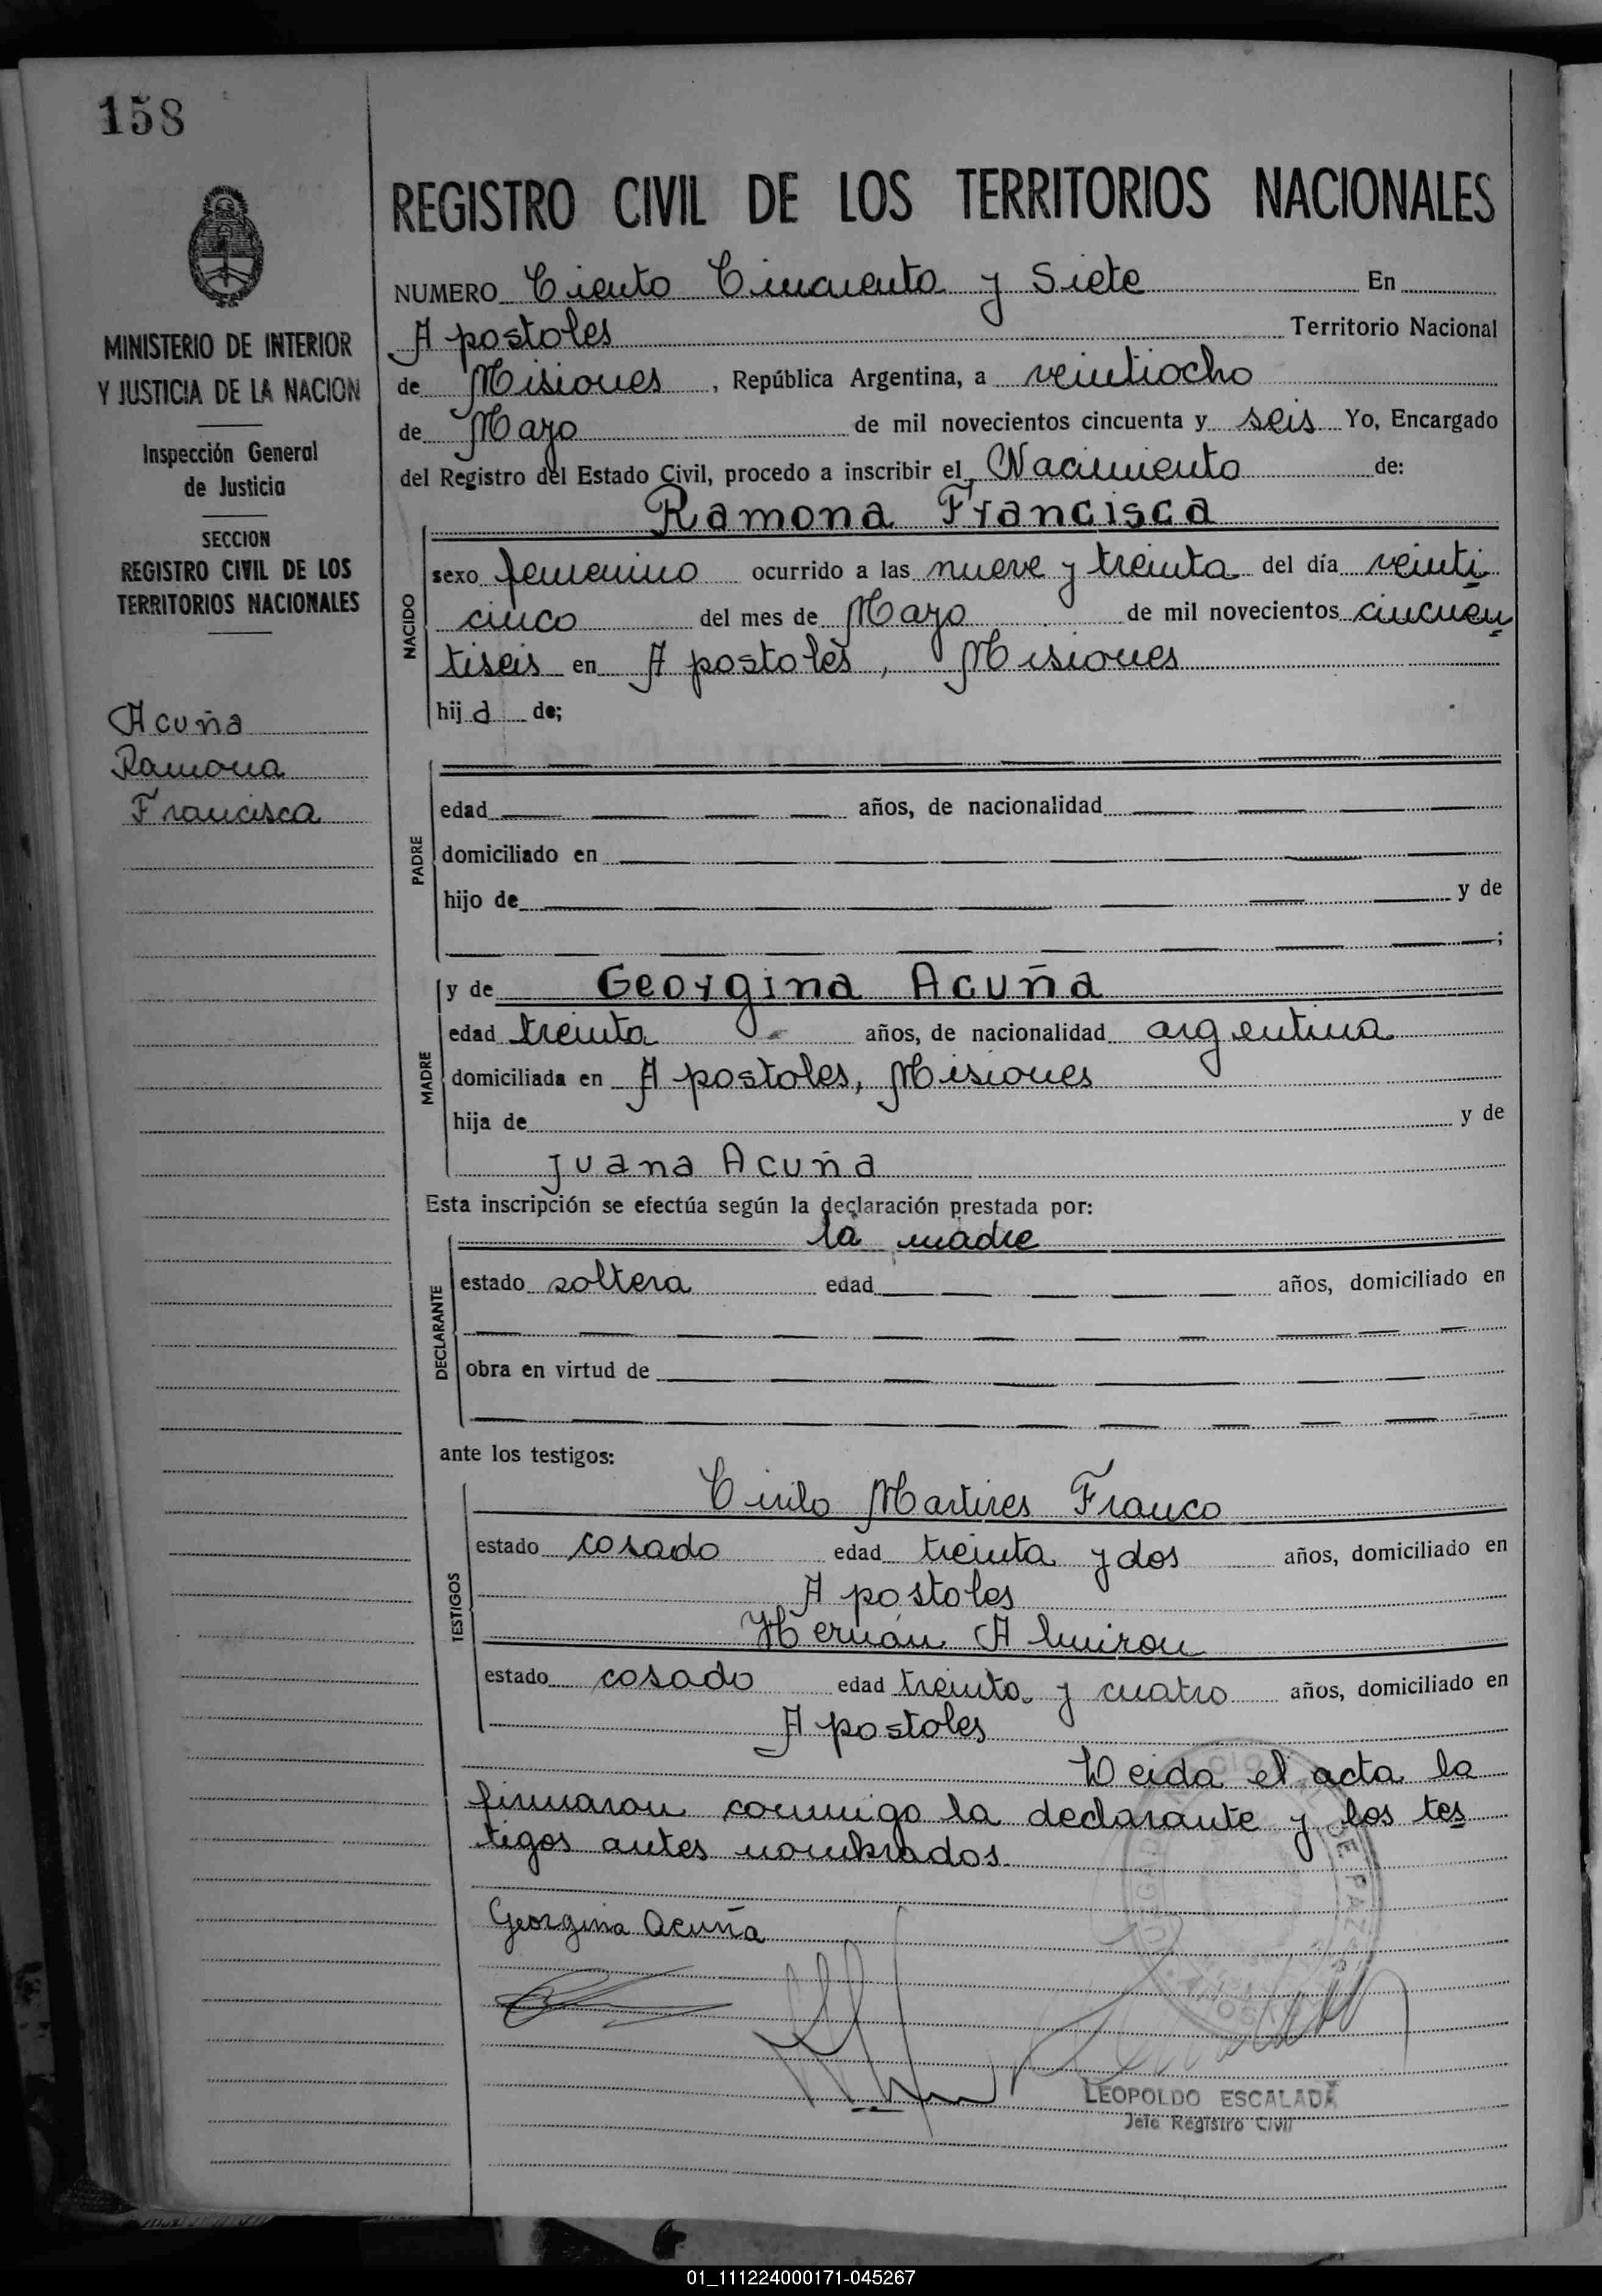 158
MINISTERIO DE INTERIOR
Y JUSTICIA DE LA NACION
Inspección General
de Justicia
SECCION
REGISTRO CIVIL DE LOS
TERRITORIOS NACIONALES
Acuña
Ramona
Francisca
REGISTRO CIVIL DE LOS TERRITORIOS NACIONALES
NUMERO Ciento Cincuenta y Siete En
Apostoles Territorio Nacional
de Misiones, República Argentina, a veintiocho
de Mayo de mil novecientos cincuenta y seis Yo, Encargado
del Registro del Estado Civil, procedo a inscribir el Nacimiento de:
Ramona Francisca
NACIDO
sexo femenino ocurrido a las nueve y treinta del día veinti
cinco del mes de Mayo de mil novecientos cincuen
tiseis en Apostoles, Misiones
hija de;
PADRE
edad años, de nacionalidad
domiciliado en
hijo de y de
;
MADRE
y de Georgina Acuña
edad treinta años, de nacionalidad argentina
domiciliada en Apostoles, Misiones
hija de y de
Juana Acuña
Esta inscripción se efectúa según la declaración prestada por:
la madre
DECLARANTE
estado soltera edad años, domiciliado en
obra en virtud de
ante los testigos:
TESTIGOS
Cirilo Martires Franco
estado casado edad treinta y dos años, domiciliado en
Apostoles
Hernán Almiron
estado casado edad treinta y cuatro años, domiciliado en
Apostoles
Leida el acta la
firmaron conmigo la declarante y los tes
tigos antes nombrados.
Georgina Acuña
DE PAZ
LEOPOLDO ESCALADA
Jefe Registro Civil
01_111224000171-045267